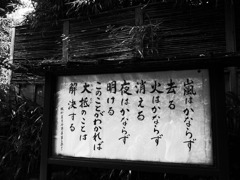 嵐はかならず
去る
火はかならず
消える
夜はかならず
明ける
このことがわかれば
大抵のことは
解決する